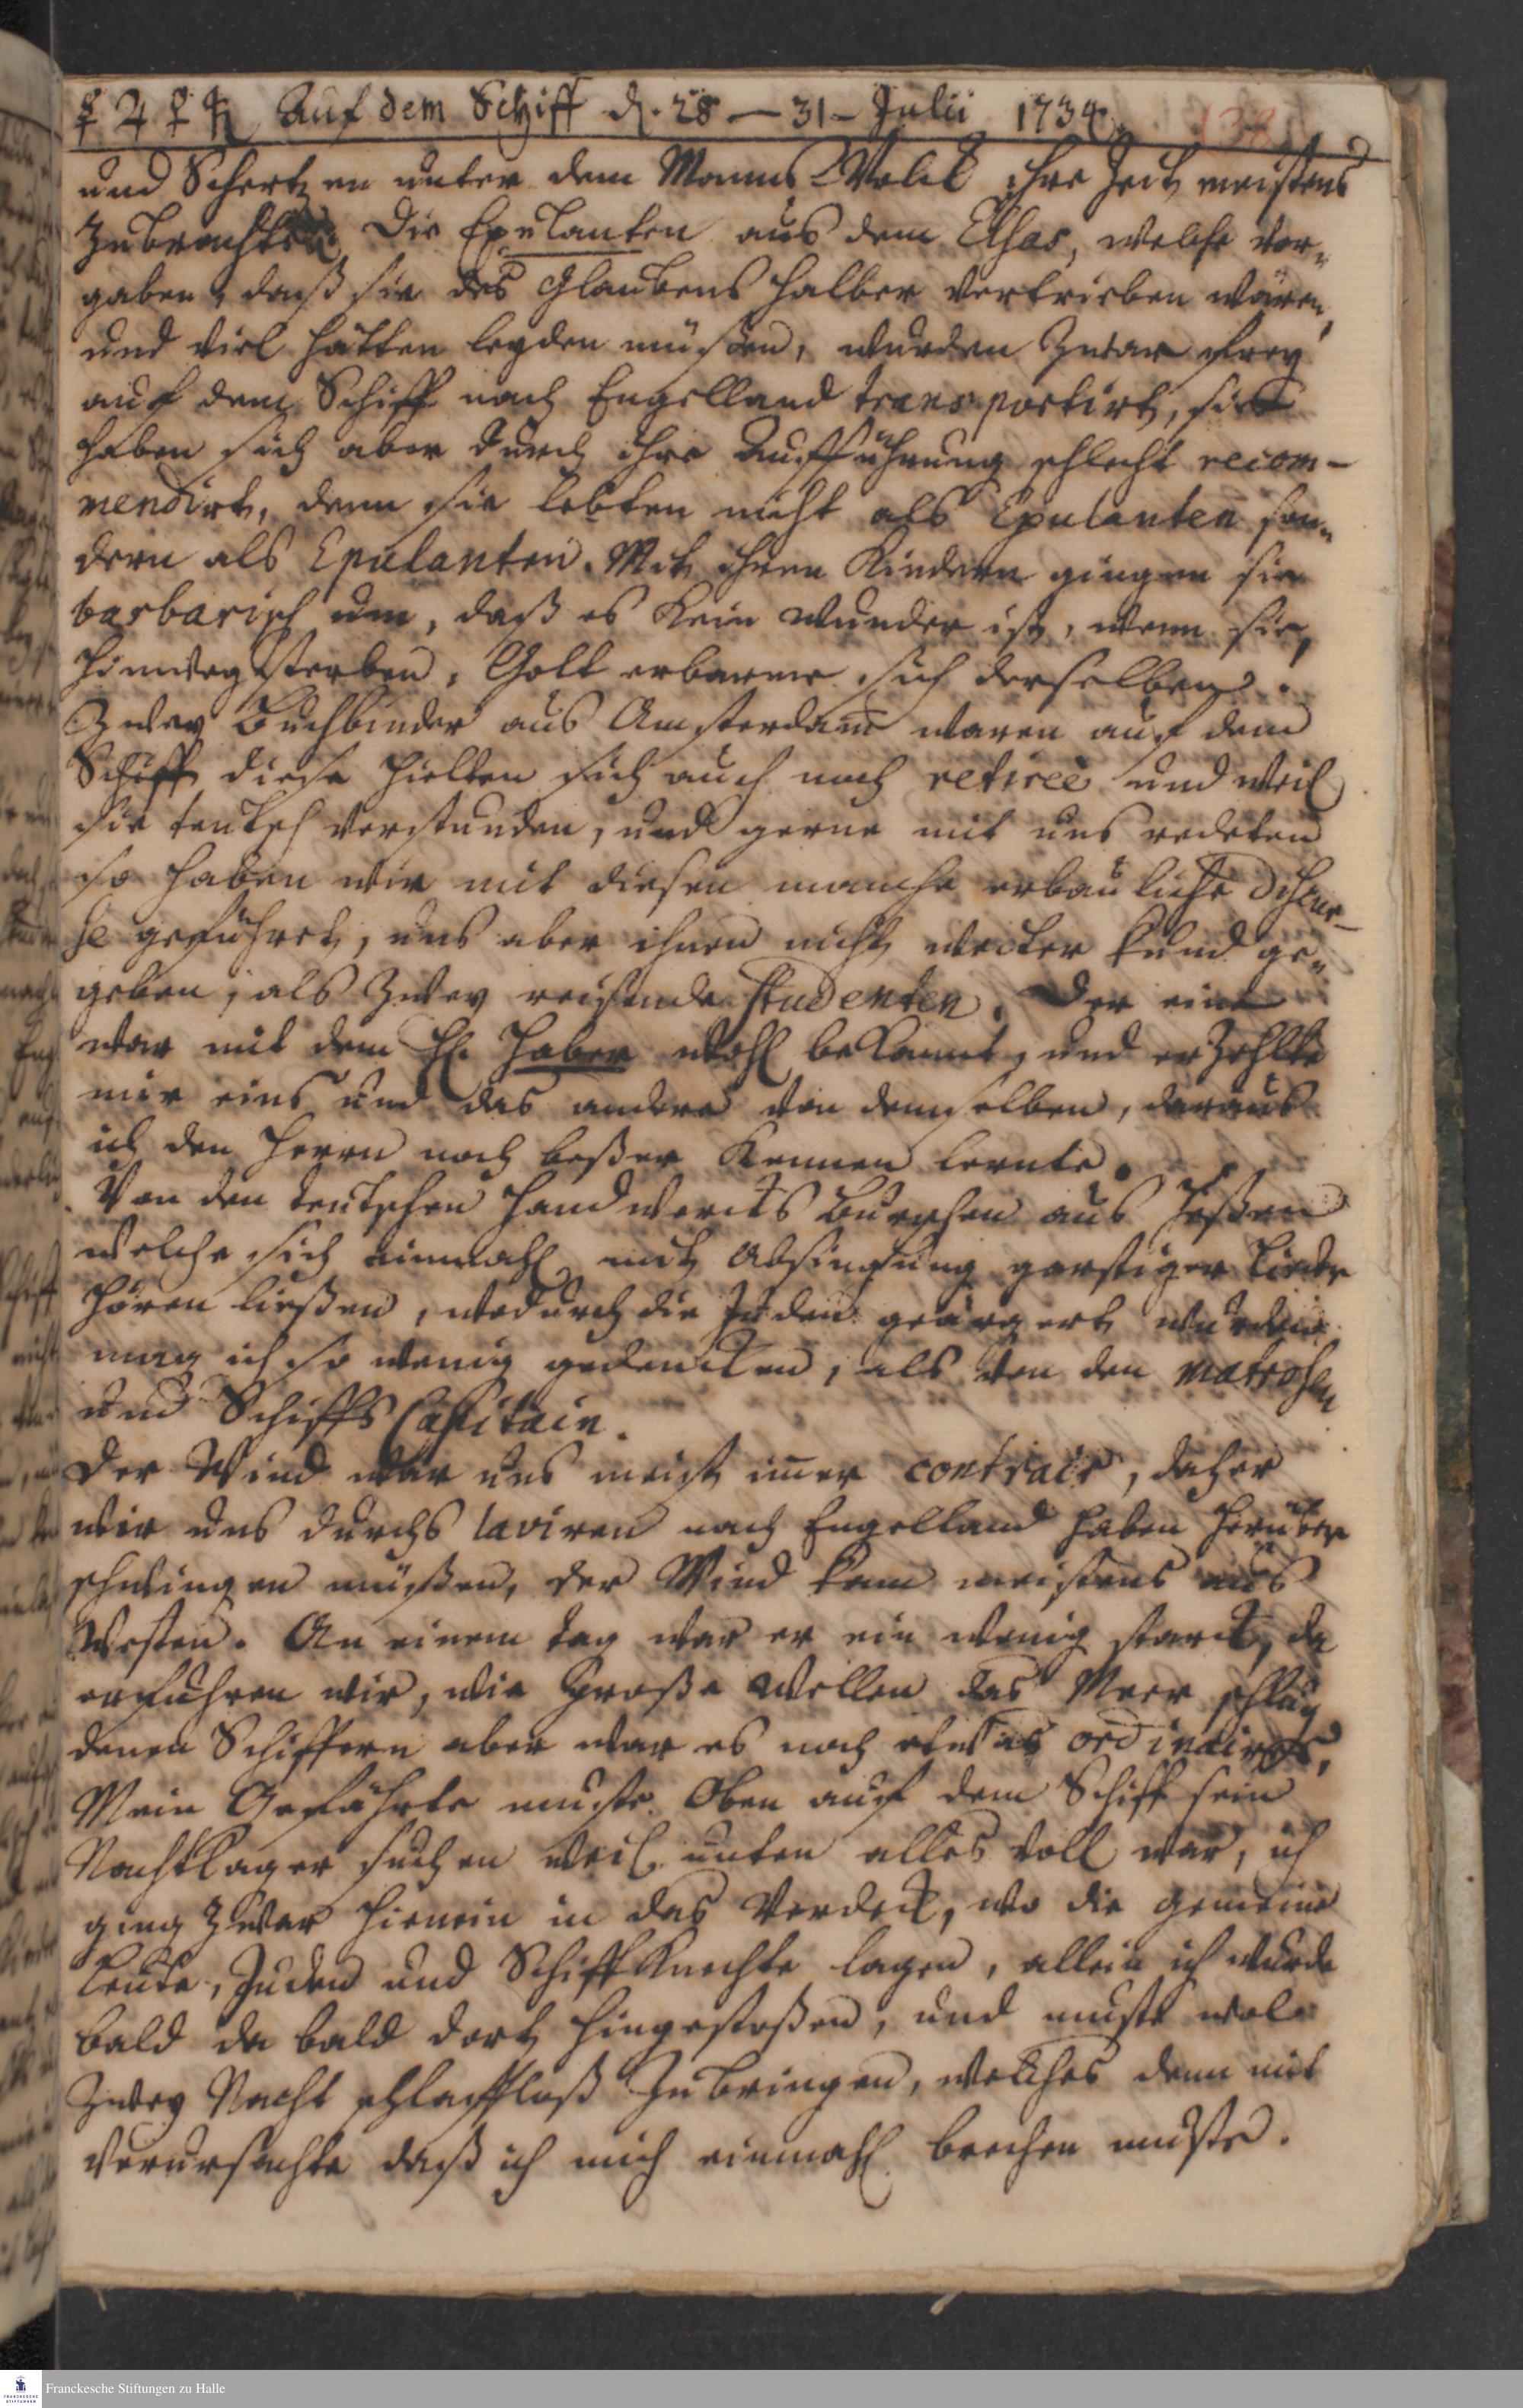 ☿ ♃ ♀ ♄ Auf dem Schiff d. 28 — 31 - Julii 1734.
und Schertzen unter dem Manns-Volck ihre Zeit meistens
zubrachten. Die Exulanten aus dem Elsas, welche vor-
gaben, daß sie des Glaubens halber vertrieben wären,
und viel hätten leyden müßen, wurden zwar frey
auf dem Schiff nach Engelland transportirt, sie
haben sich aber durch ihre Aufführung schlecht recom-
mendirt, denn sie lebten nicht als Exulanten son-
dern als Epulanten. Mit ihren Kindern gingen sie
barbarisch um, daß es kein wunder ist, wenn sie
hinweg sterben. Gott erbarme sich derselben.
Zwey Buchbinder aus Amsterdam waren auf dem
Schiff diese hielten sich auch noch retireè und weil
sie teutsch verstunden, und gerne mit uns redeten
so haben wir mit diesen manche erbauliche Discur-
se geführet, uns aber ihnen nicht weiter kund ge-
geben, als zwey reisende Studenten. Der eine
war mit dem H. Haber wohl bekannt, und erzehlte
mir eins und das andere von demselben, daraus
ich den Herrn noch beßer kennen lernte.
Von den teutschen Handwercks Burschen aus Heßen
welche sich einmahl mit Absingung garstiger Lieder
hören ließen, wodurch die Juden geärgert wurden
mag ich so wenig gedencken, als von den Matrosen
und Schiffs Capitain.
Der Wind war uns meist imer contrair, daher
wir uns durchs laviren nach Engelland haben herüber
schwingen müßen, der Wind kam meistens aus
Westen. An einem Tag war er ein wenig starck, da
erfuhren wir, wie große Wellen das Meer schlug
denen Schiffern aber war es noch etwas ordinaires,
Mein Gefährte muste oben auf dem Schiff sein
Nachtlager suchen weil unten alles voll war, ich
ging zwar hienein in das Verdeck, wo die gemeine
Leute, Juden und Schiff Knechte lagen, allein ich wurde
bald da bald dort hingestoßen, und muste wol
zwey Nacht schlaffloß zubringen, welches denn mit
verursachte daß ich mich einmahl brechen muste.
Franckesche Stiftungen zu Halle